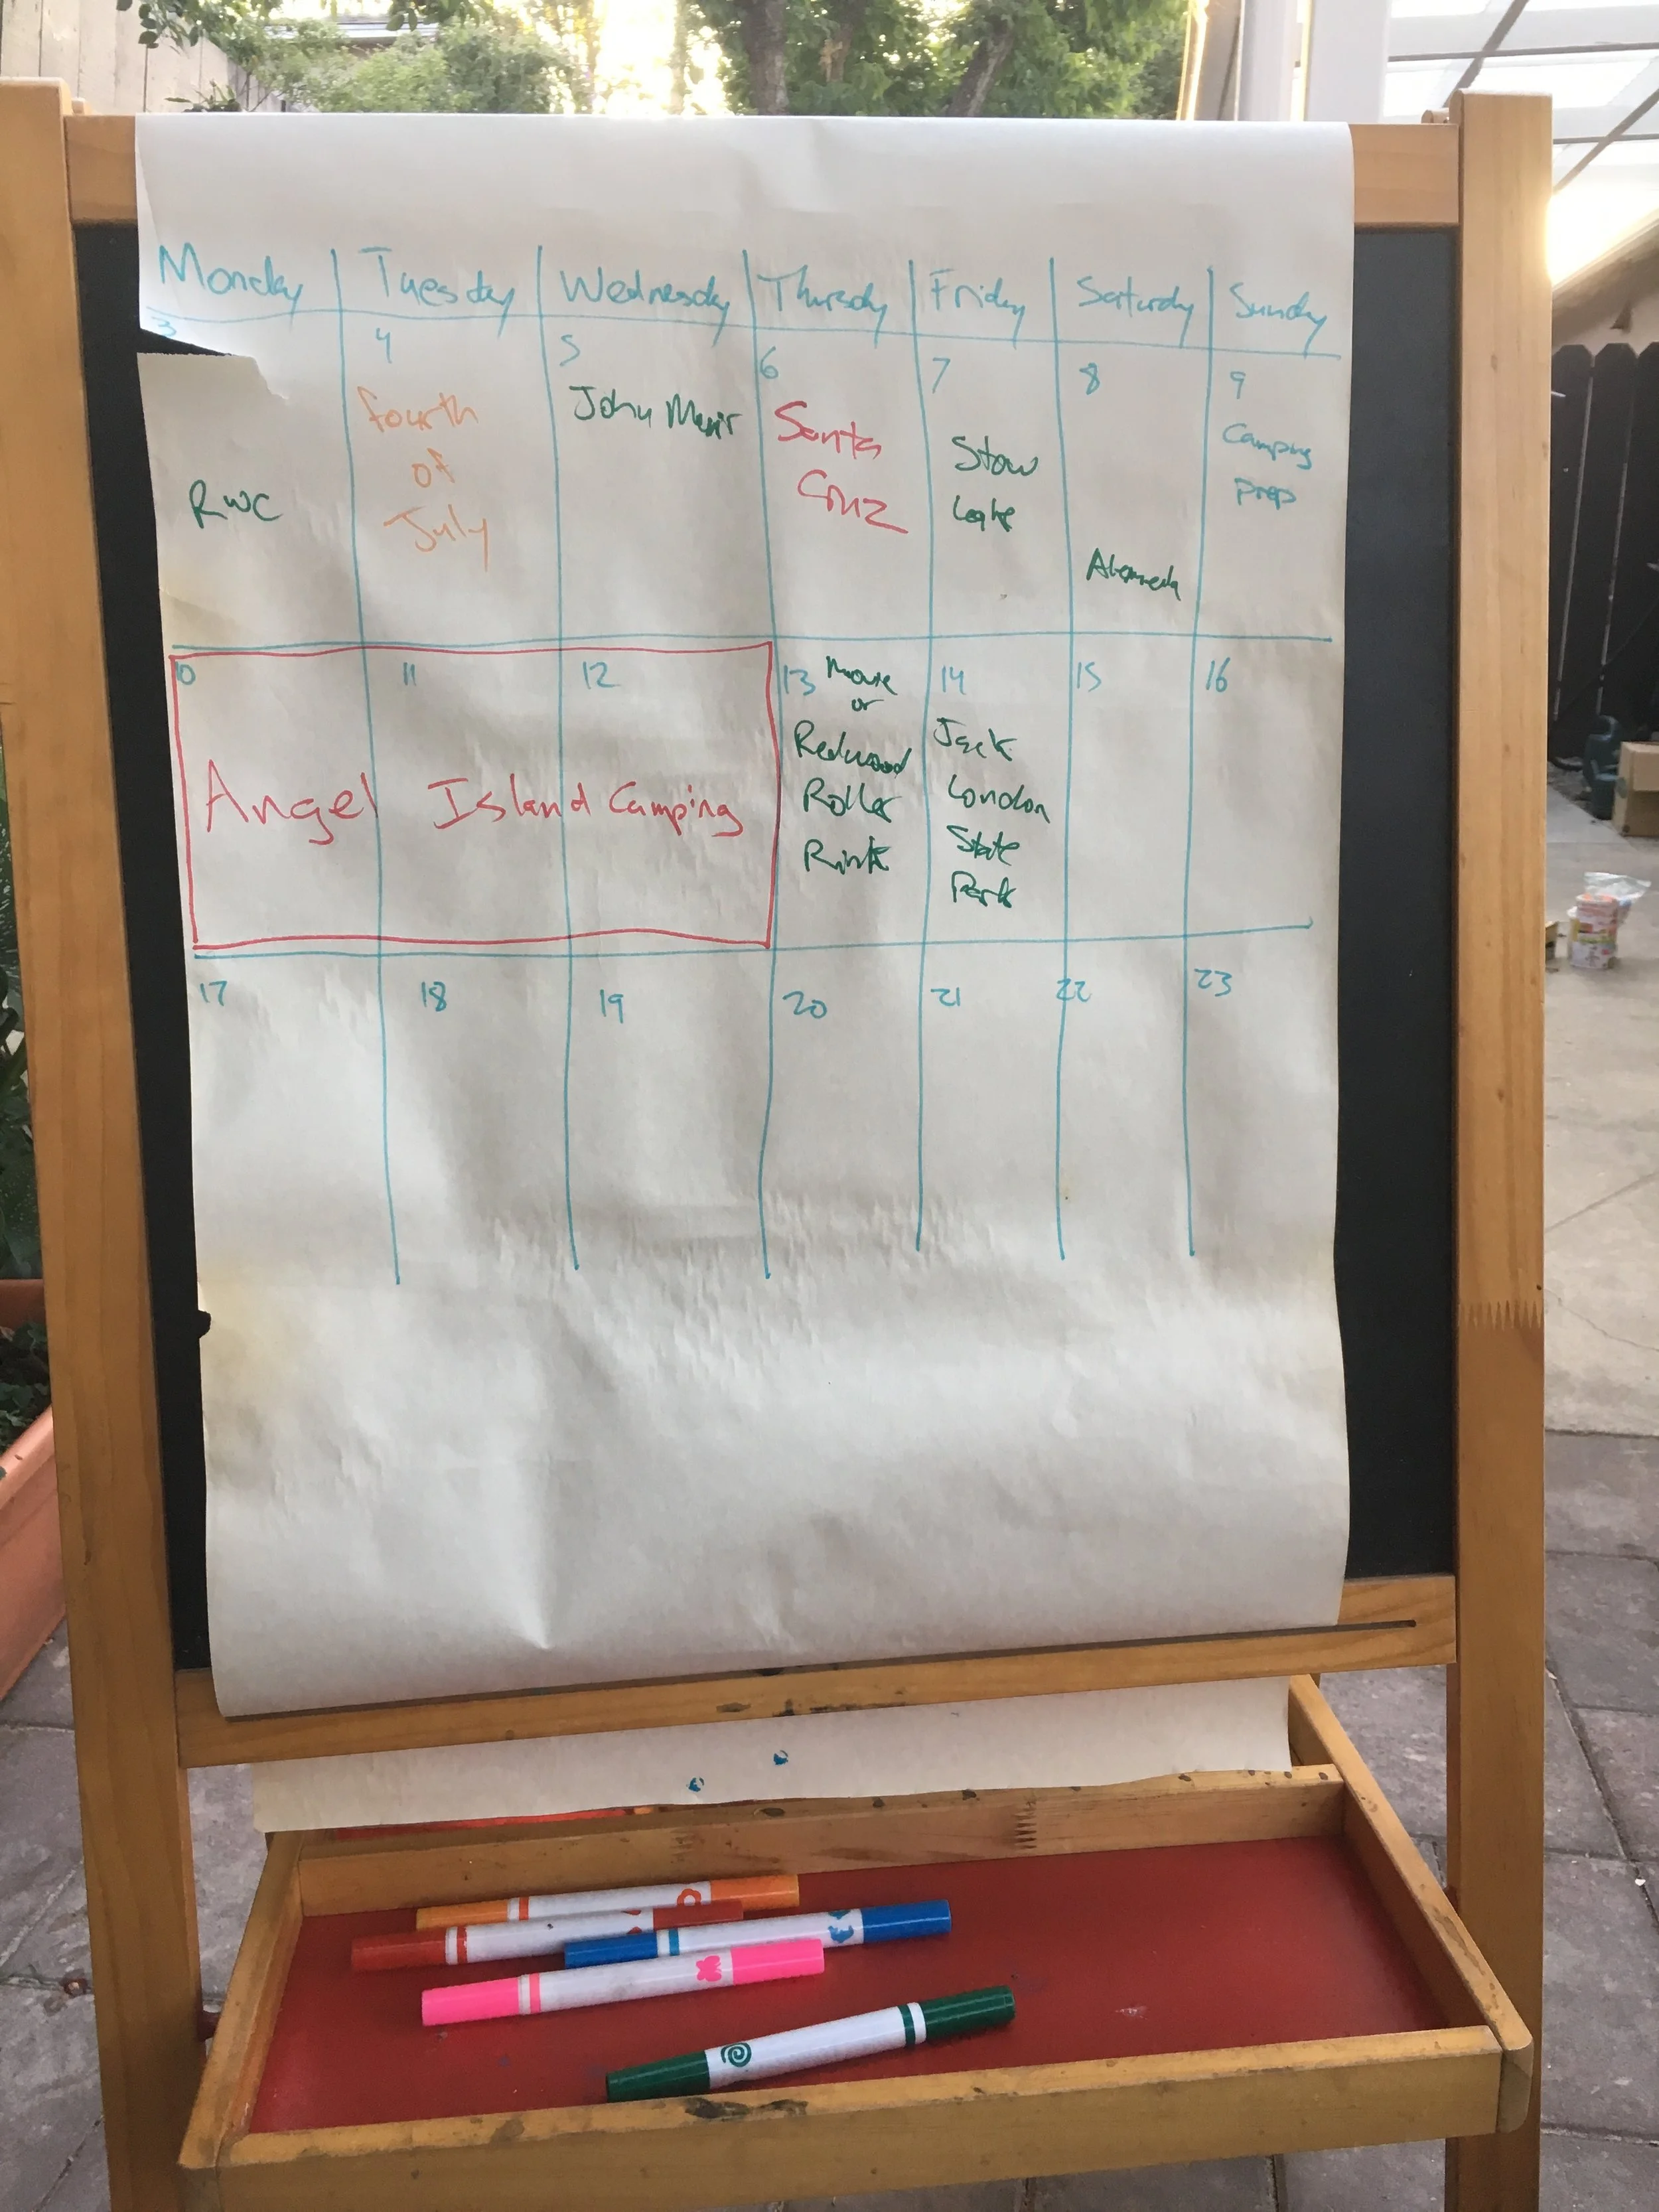 Monday Tuesday Wednesday Thursday Friday Saturday Sunday
3 4 5 6 7 8 9
RWC
fourth
of
July
John Muir
Santa
Cruz
Stow
Lake
Alameda
Camping
Prep
10 11 12 13 14 15 16
Angel Island Camping
Movie
or
Redwood
Roller
Rink
Jack
London
State
Park
17 18 19 20 21 22 23